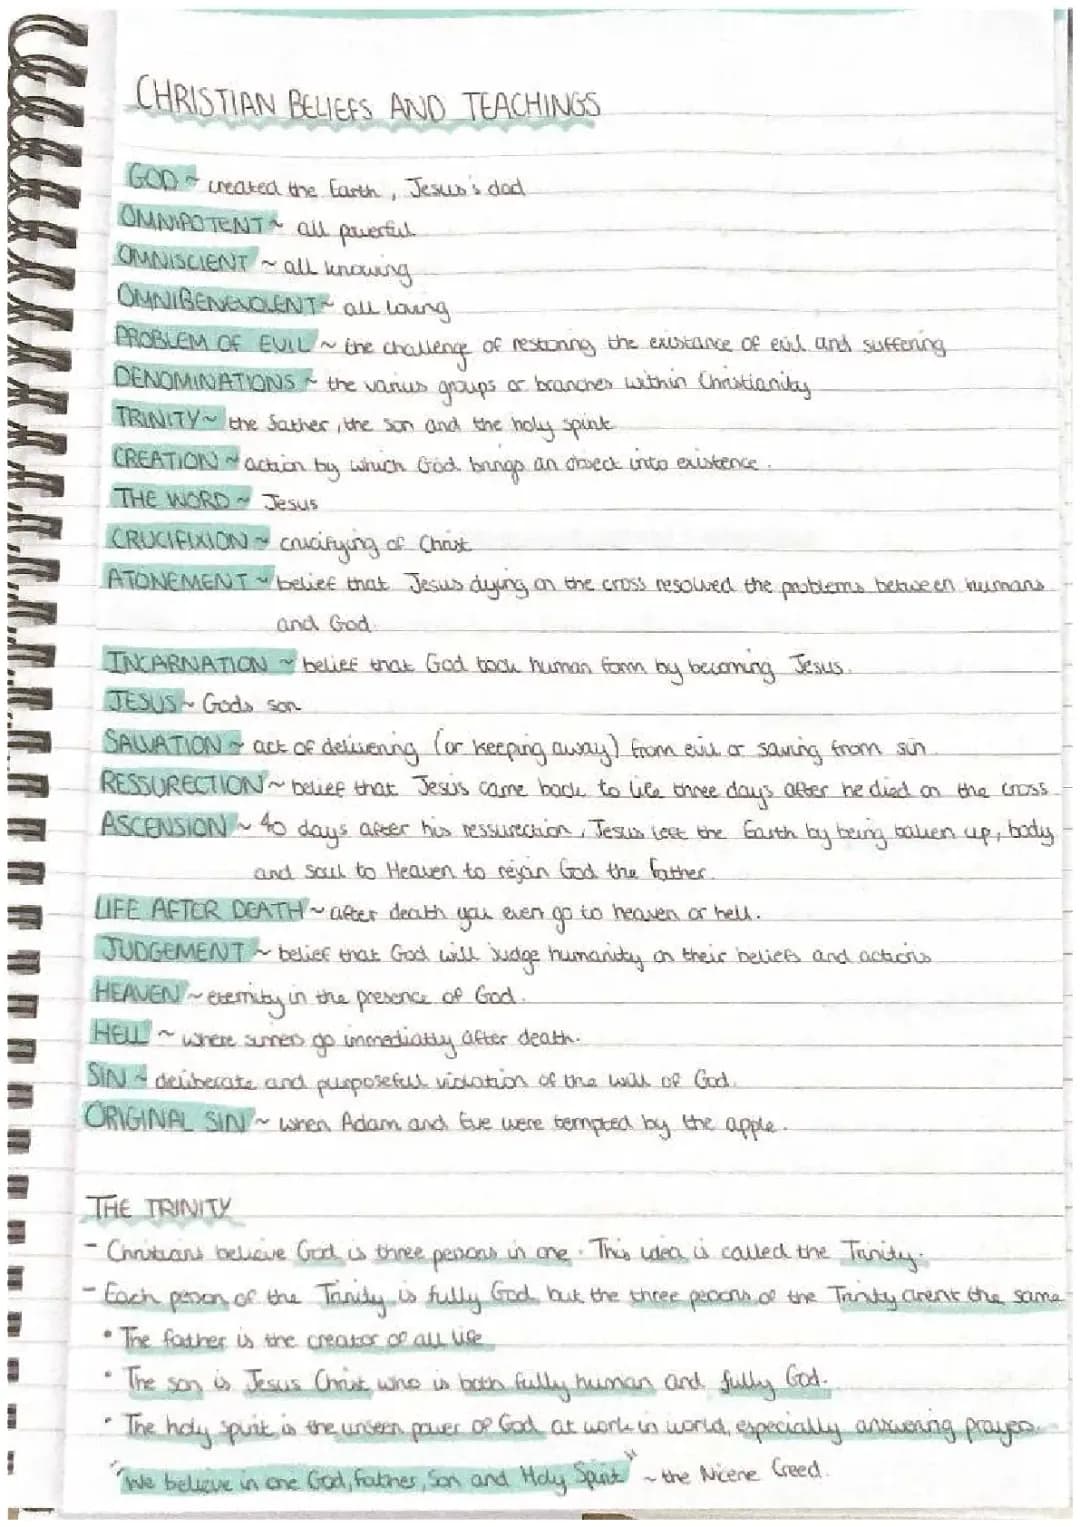 CHRISTIAN BELIEFS AND TEACHINGS
GOD ~ created the Earth, Jesus's dad
OMNIPOTENT ~ all powerful
OMNISCIENT ~ all knowing
OMNIBENEVOLENT ~ all loving
PROBLEM OF EVIL ~ the challenge of restoring the existance of evil and suffering
DENOMINATIONS ~ the various groups or branches within Christianity
TRINITY ~ the father, the son and the holy spirit
CREATION ~ action by which God brings an object into existence.
THE WORD ~ Jesus
CRUCIFIXION ~ crucifying of Christ
ATONEMENT ~ belief that Jesus dying on the cross resolved the problems between humans
and God.
INCARNATION ~ belief that God took human form by becoming Jesus.
JESUS ~ Gods son
SALVATION ~ act of delivering (or keeping away) from evil or saving from sin.
RESSURECTION ~ belief that Jesus came back to life three days after he died on the cross
ASCENSION ~ 40 days after his ressurection, Jesus left the Earth by being taken up, body
and soul to Heaven to rejoin God the father.
LIFE AFTER DEATH ~ after death you even go to heaven or hell.
JUDGEMENT ~ belief that God will judge humanity on their beliefs and actions
HEAVEN ~ eternity in the presence of God.
HELL ~ where sinners go immediatly after death.
SIN ~ deliberate and purposefull violation of the will of God.
ORIGINAL SIN ~ when Adam and Eve were tempted by the apple.
THE TRINITY
- Christians believe God is three persons in one. This idea is called the Trinity.
- Each person of the Trinity is fully God, but the three persons of the Trinity arent the same
• The father is the creator of all life
• The son is Jesus Christ who is both fully human and fully God.
• The holy spirit is the unseen power of God at work in world, especially answering prayers.
"We believe in one God, father, Son and Holy Spirit" ~ the Nicene Creed.